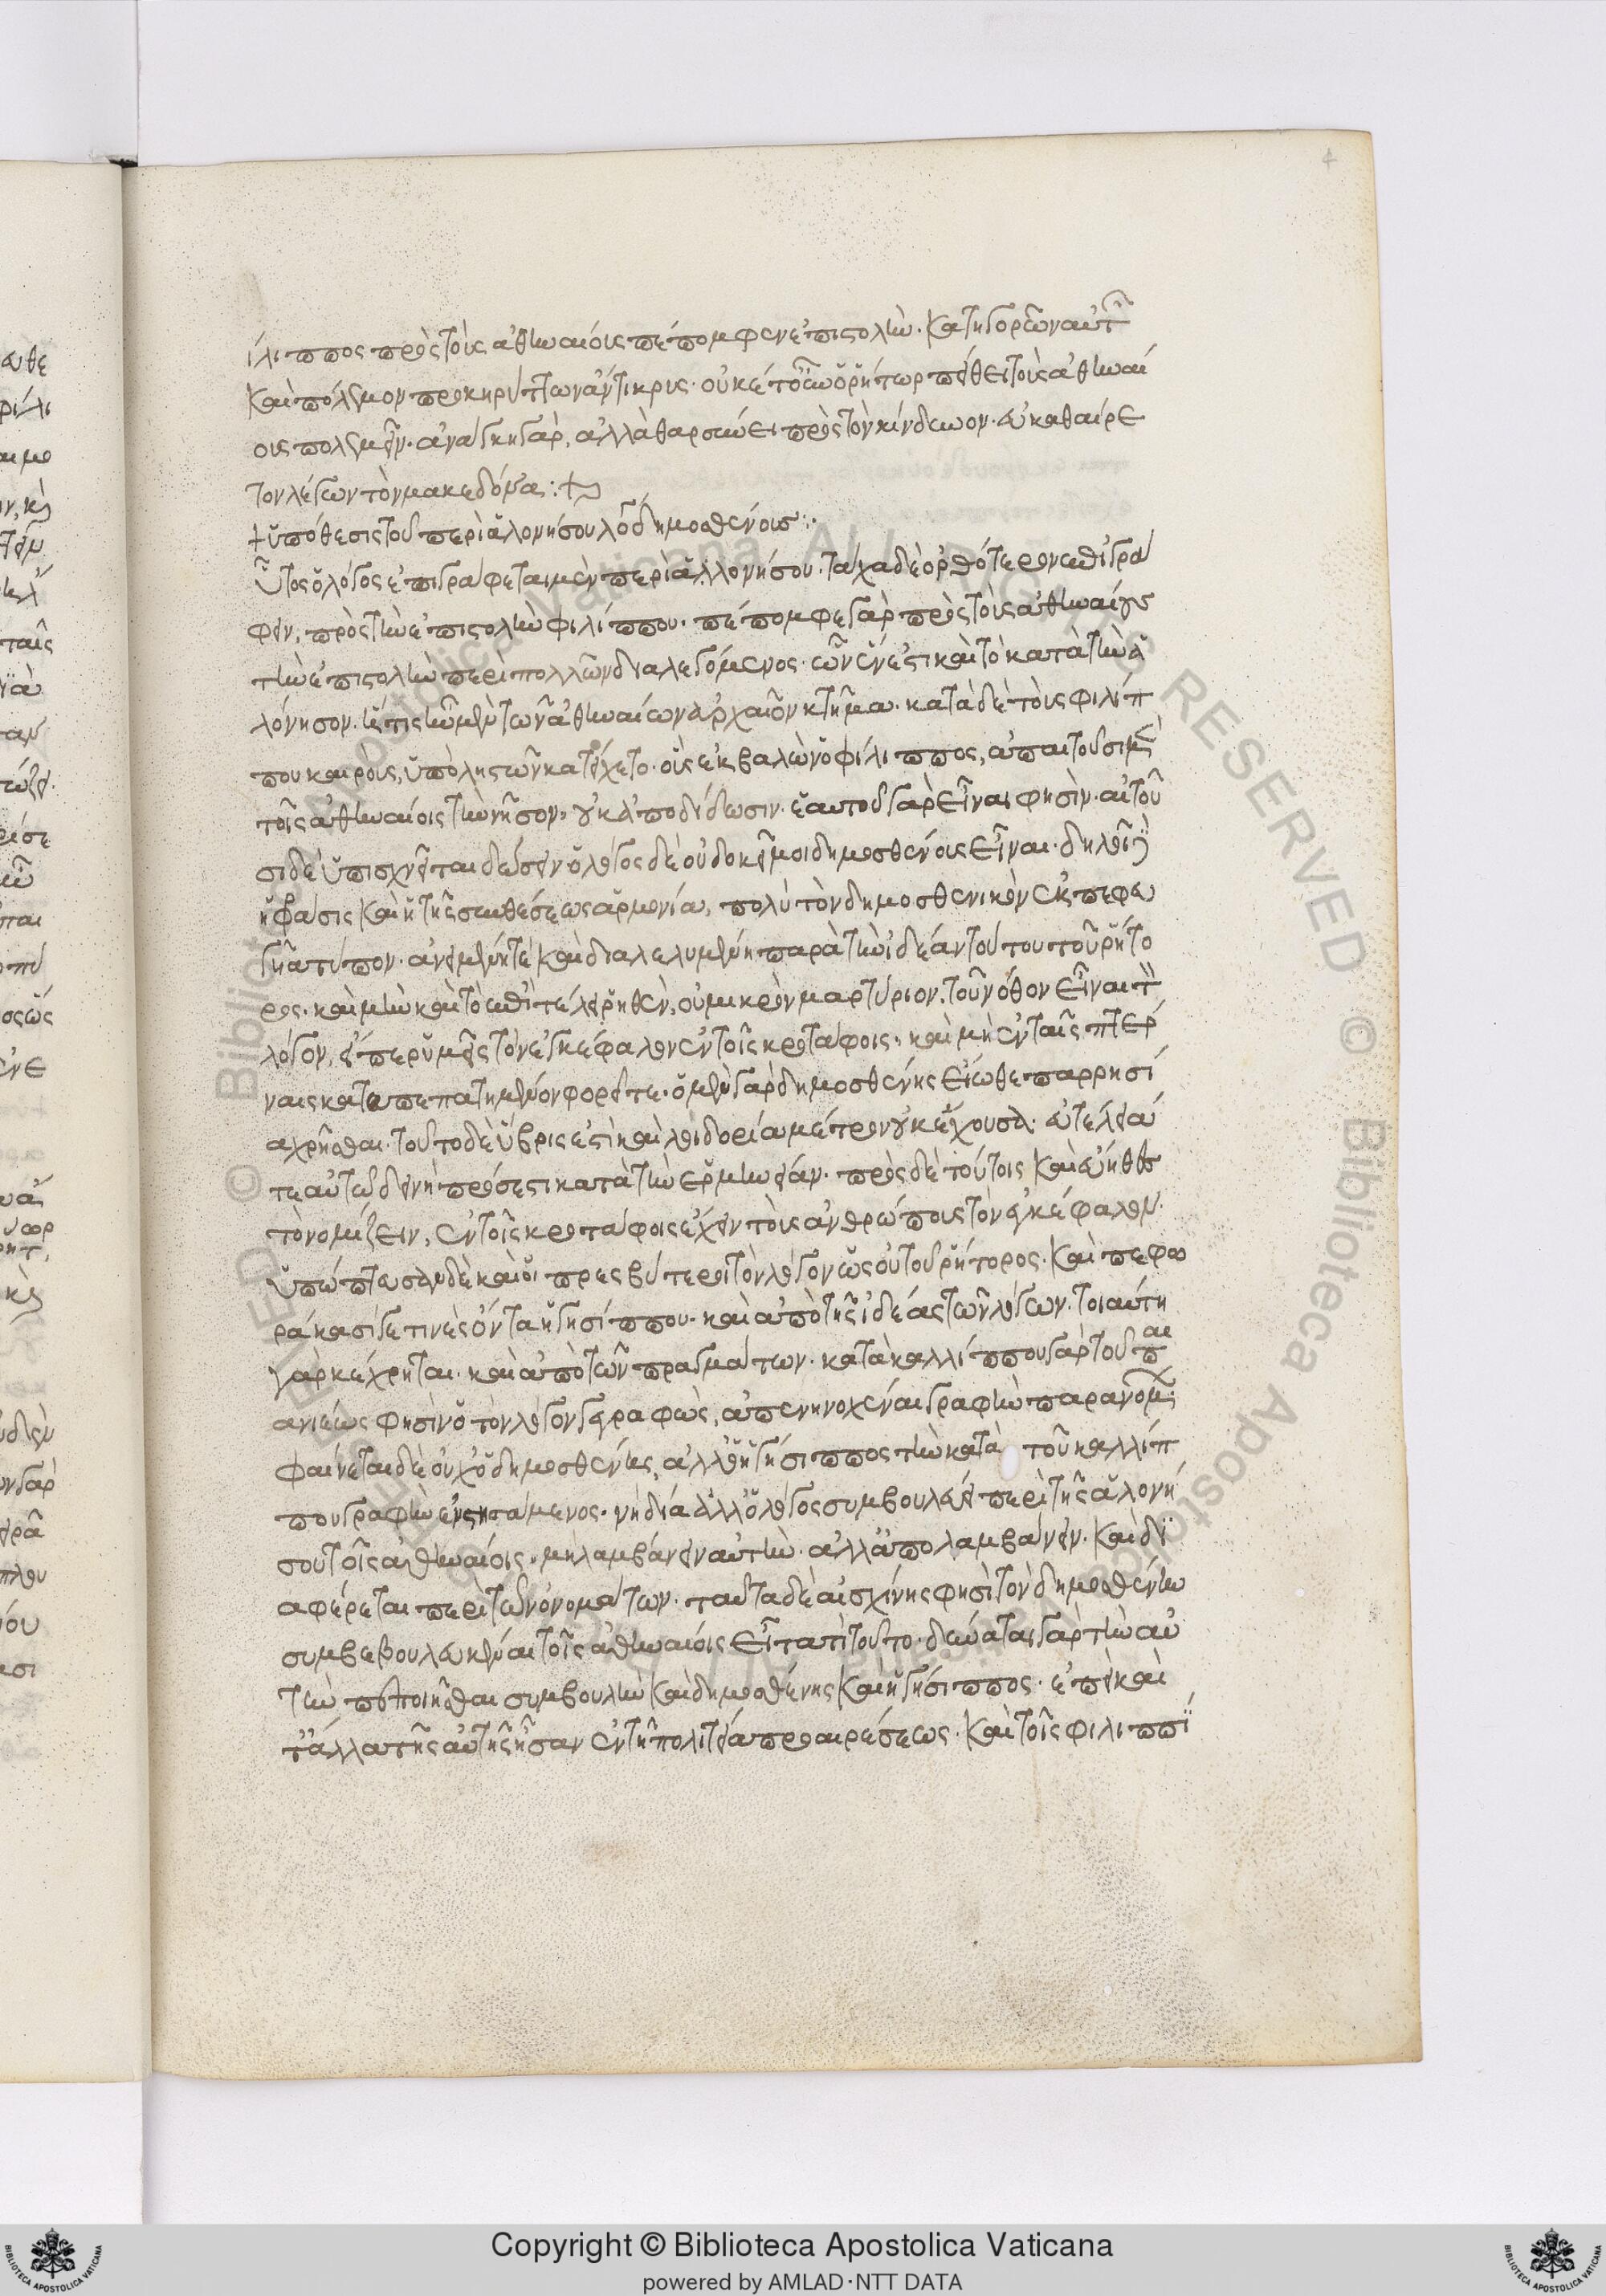 4
ίλιππος πρὸς τοὺς ἀθηναίους πέπομφεν ἐπιστολὴν. κατηγορῶν αὐτῶν
καὶ πόλεμον προκηρύττων ἄντικρυς. οὐκέτ' οὖν ὁ ῥήτωρ πείθει τοὺς ἀθηναί
ους πολεμεῖν. ἀνάγκη γὰρ, ἀλλὰ θαρσύνει πρὸς τὸν κίνδυνον. εὐκαθαίρε
τον λέγων τὸν μακεδόνα:
+ ὑπόθεσις τοῦ περὶ ἁλονήσου λό δημοσθένους:
ὗτος ὁ λόγος ἐπιγράφεται μὲν περὶ ἁλλονήσου. τάχα δὲ ὀρθότερον ἐπιγρά
φειν, πρὸς τὴν ἐπιστολὴν φιλίππου. πέπομφε γὰρ πρὸς τοὺς ἀθηναίους
τὴν ἐπιστολὴν περὶ πολλῶν διαλεγόμενος. ὧν ἕν ἐστι καὶ τὸ κατὰ τὴν ἁ
λόνησον. ἥτις ἦν μὲν τῶν ἀθηναίων ἀρχαῖον κτῆμα. κατὰ δὲ τοὺς φιλίπ
που καιροὺς, ὑπὸ ληστῶν κατείχετο. οὓς ἐκβαλὼν ὁ φίλιππος, ἀπαιτοῦσι μὲν
τοῖς ἀθηναίοις τὴν νῆσον, οὐκ ἀποδίδωσιν. ἑαυτοῦ γὰρ εἶναι φησὶν. αἰτοῦ
σι δὲ ὑπισχνεῖται δώσειν ὁ λόγος δὲ οὐ δοκεῖ μοι δημοσθένους εἶναι. δηλοῖ
ἡ φράσις καὶ ἡ τῆς συνθέσεως ἁρμονία, πολὺ τὸν δημοσθενικὸν ἐκπεφευ
γυῖα τύπον. ἀνειμένη τὲ καὶ διαλελυμένη παρὰ τὴν ἰδέαν τούτου τοῦ ῥήτο
ρος. καὶ μὴν καὶ τὸ ἐπὶ τέλει ῥηθὲν, οὐ μικρὸν μαρτύριον. τοῦ νόθον εἶναι τὸν
λόγον, εἴπερ ὑμεῖς τὸν ἐγκέφαλον ἐν τοῖς κροτάφοις, καὶ μὴ ἐν ταῖς πτέρ
ναις καταπεπατημένον φορεῖτε. ὁ μὲν γὰρ δημοσθένης εἴωθε παρρησί
α χρῆσθαι. τοῦτο δὲ ὕβρις ἐστὶ καὶ λοιδορία μέτρον οὐκ ἔχουσα. εὐτέλεια
τε αὐτῶ δεινὴ πρόσεστι κατὰ τὴν ἑρμηνείαν. πρὸς δὲ τούτοις καὶ εὔηθες
τὸ νομίζειν, ἐν τοῖς κροτάφοις ἔχειν τοὺς ἀνθρώπους τὸν ἐγκέφαλον.
ὑπώπτευσαν δὲ καὶ οἱ πρεσβύτεροι τὸν λόγον ὡς οὐ τοῦ ῥήτορος. καὶ πεφω
ράκασί γε τινὲς ὄντα ἡγησίππου. καὶ ἀπὸ τῆς ἰδέας τῶν λόγων. τοιαύτη
γὰρ κέχρηται. καὶ ἀπὸ τῶν πραγμάτων. κατὰ καλλίππου γὰρ τοῦ παι
ανιέως φησὶν ὁ τὸν λόγον γεγραφὼς, ἀπενηνοχέναι γραφὴν παρανόμων.
φαίνεται δὲ οὐχ ὁ δημοσθένης, ἀλλ' ὁ ἡγήσιππος τὴν κατὰ τοῦ καλλίπ
που γραφὴν ἐνστησάμενος. νὴ δία ἀλλ' ὁ λόγος συμβουλεύει περὶ τῆς ἁλονή
σου τοῖς ἀθηναίοις, μὴ λαμβάνειν αὐτὴν. ἀλλ' ἀπολαμβάνειν. καὶ δι
αφέρεται περὶ τῶν ὀνομάτων. ταῦτα δὲ αἰσχίνης φησὶ τὸν δημοσθένην
συμβεβουλευκέναι τοῖς ἀθηναίοις εἶτα τί τοῦτο. δύναται γὰρ τὴν αὐ
τὴν πεποιῆσθαι συμβουλὴν καὶ δημοσθένης καὶ ἡγήσιππος. ἐπεὶ καὶ
τἄλλα τῆς αὐτῆς ἦσαν ἐν τῆ πολιτεία προαιρέσεως. καὶ τοῖς φιλιππί
Copyright © Biblioteca Apostolica Vaticana
powered by AMLAD·NTT DATA